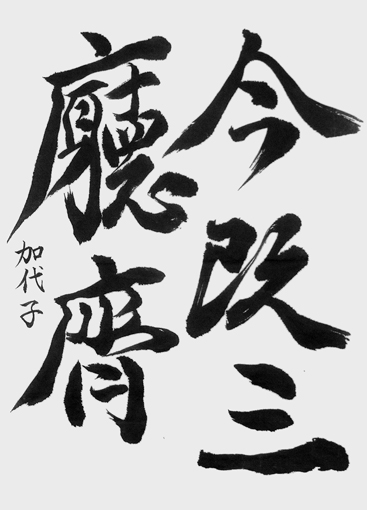 今改三
廳
加代子